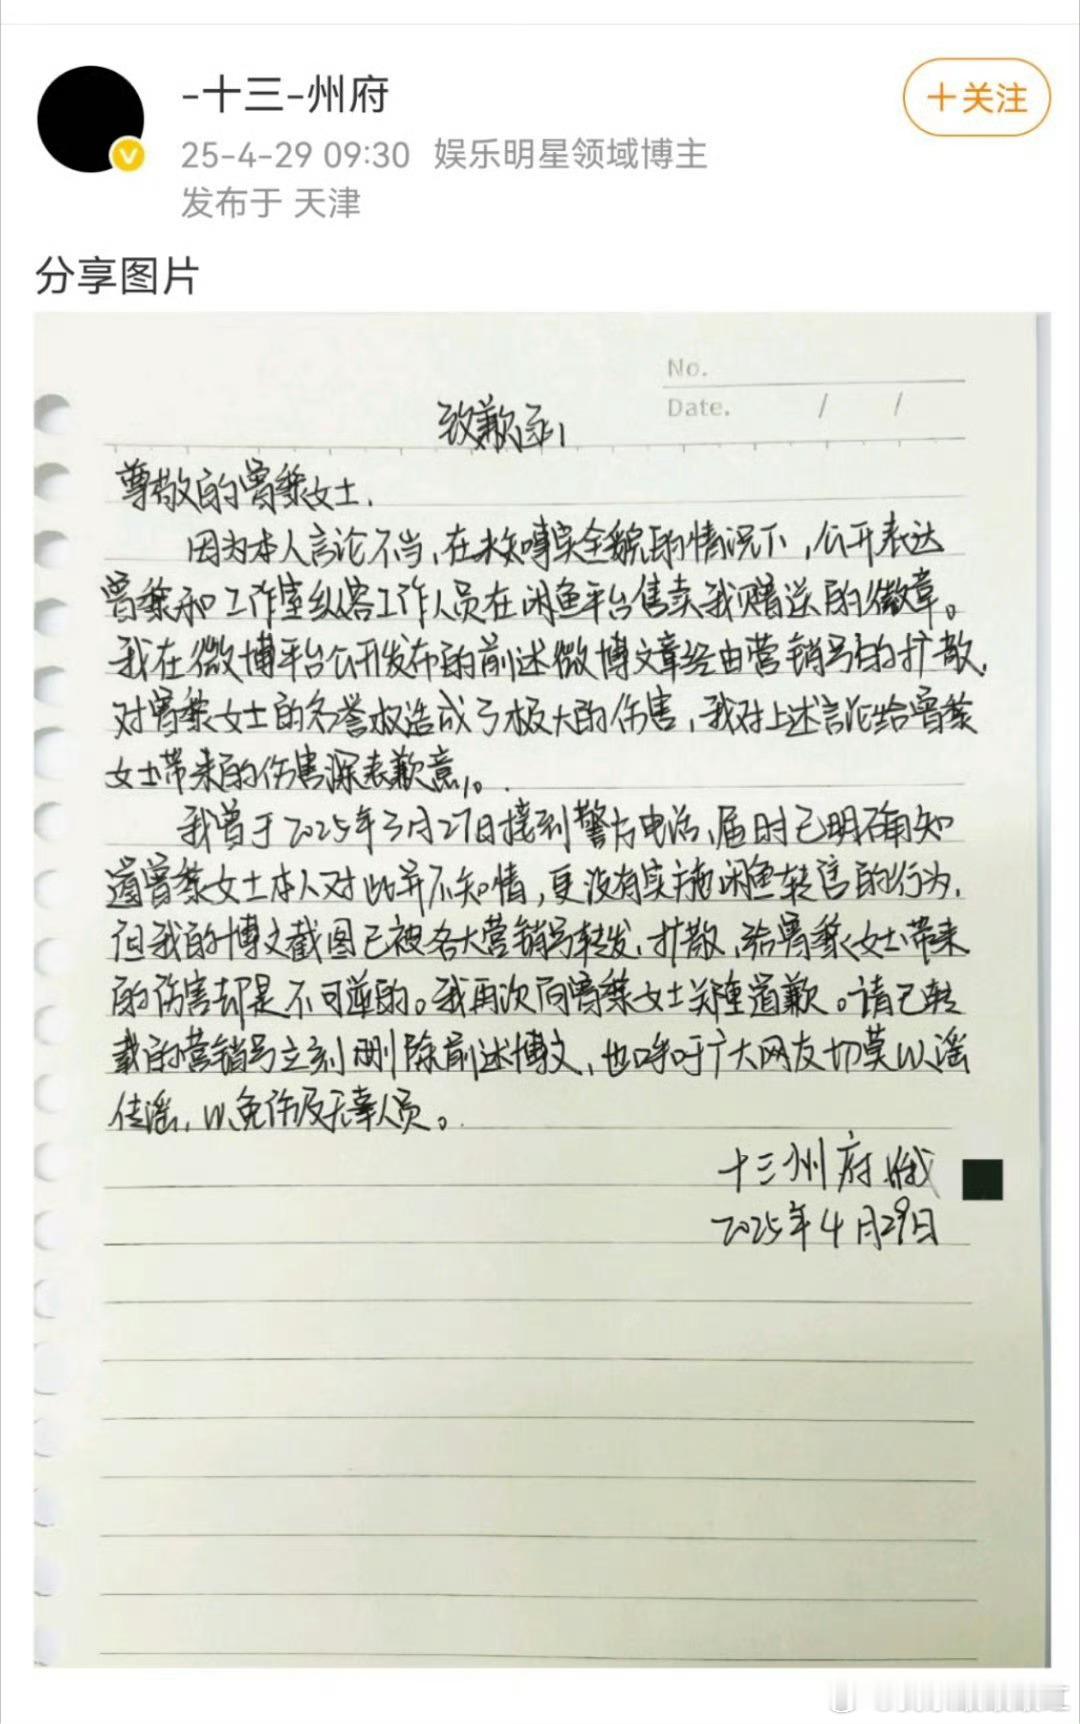 -十三-州府
＋关注
25-4-29 09:30 娱乐明星领域博主
发布于 天津
分享图片
No.
Date. / /
致歉函
尊敬的曾黎女士,
因为本人言论不当,在未知事实全貌的情况下,公开表达
曾黎和工作室纵容工作人员在闲鱼平台售卖我赠送的徽章。
我在微博平台公开发布的前述微博文章经由营销号的扩散,
对曾黎女士的名誉权造成了极大的伤害,我对上述言论给曾黎
女士带来的伤害深表歉意。
我曾于2025年3月27日接到警方电话,届时已明确知
道曾黎女士本人对此并不知情,更没有实施闲鱼转售的行为,
但我的博文截图已被各大营销号转发,扩散,给曾黎女士带来
的伤害却是不可逆的。我再次向曾黎女士郑重道歉。请已转
载的营销号立刻删除前述博文,也呼吁广大网友切莫以谣
传谣,以免伤及无辜人员。
十三州府
2025年4月29日